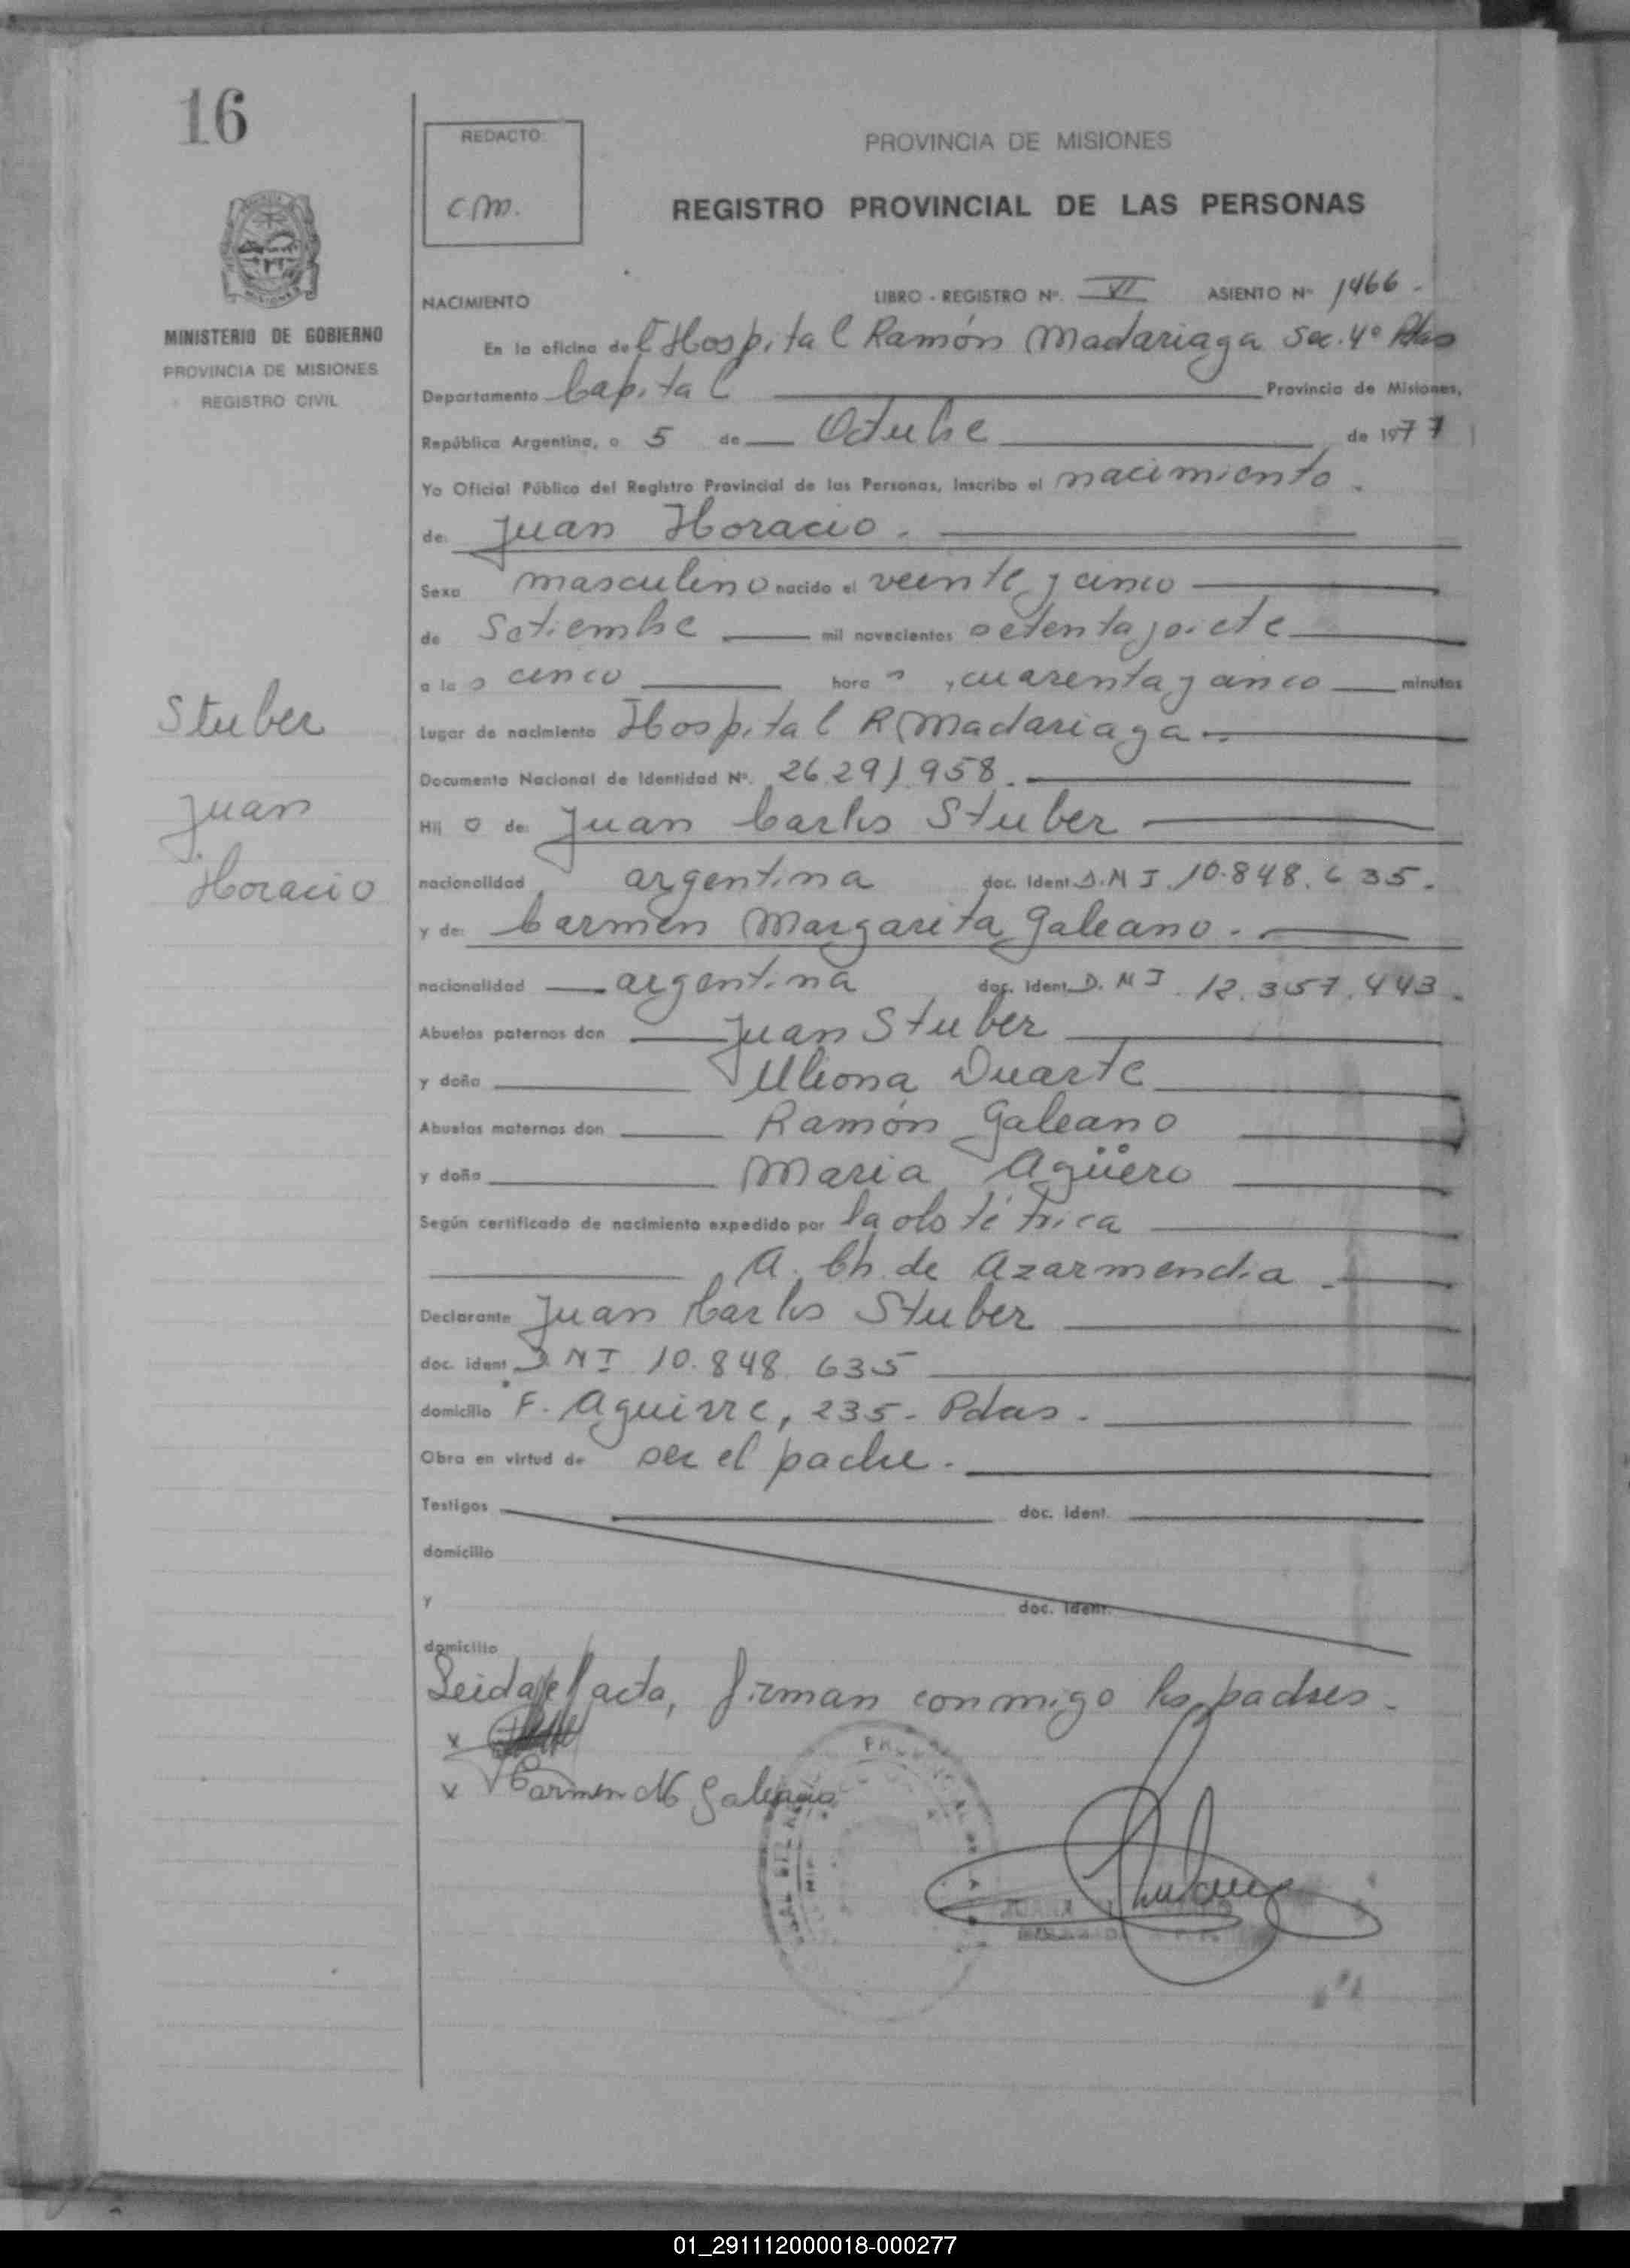 16
REDACTO:
C M.
PROVINCIA DE MISIONES
REGISTRO PROVINCIAL DE LAS PERSONAS
MINISTERIO DE GOBIERNO
PROVINCIA DE MISIONES
REGISTRO CIVIL
NACIMIENTO LIBRO - REGISTRO Nº. VI ASIENTO Nº 1466 -
En la oficina del Hospital Ramón Madariaga Sec. 4º Pdas
Departamento Capital Provincia de Misiones,
República Argentina, a 5 de Octubre de 1977
Yo Oficial Público del Registro Provincial de las Personas, Inscribo el nacimiento.
de: Juan Horacio.
Sexo masculino nacido el veinte y cinco
de Setiembre mil novecientos setenta y siete
a las cinco horas, cuarenta y cinco minutos
Stuber
Juan
Horacio
Lugar de nacimiento Hospital R Madariaga.
Documento Nacional de Identidad Nº. 26.291.958.
Hij o de: Juan Carlos Stuber
nacionalidad argentina doc. Ident D.N I. 10.848.635.
y de: Carmen Margarita Galeano.
nacionalidad argentina doc. Ident D. N I. 12.357.443.
Abuelos paternos don Juan Stuber
y doña Duarte
Abuelos maternos don Ramón Galeano
y doña Maria Agüero
Según certificado de nacimiento expedido por la obstétrica
A. Ch. de Azarmendia.
Declarante Juan Carlos Stuber
doc. ident D. N I 10.848.635
domicilio F. Aguirre, 235 - Pdas.
Obra en virtud de ser el padre.
Testigos doc. ident.
domicilio
y doc. ident.
domicilio
Leida el acta, firman conmigo los padres.
x
x Carmen M Galeano
01_291112000018-000277